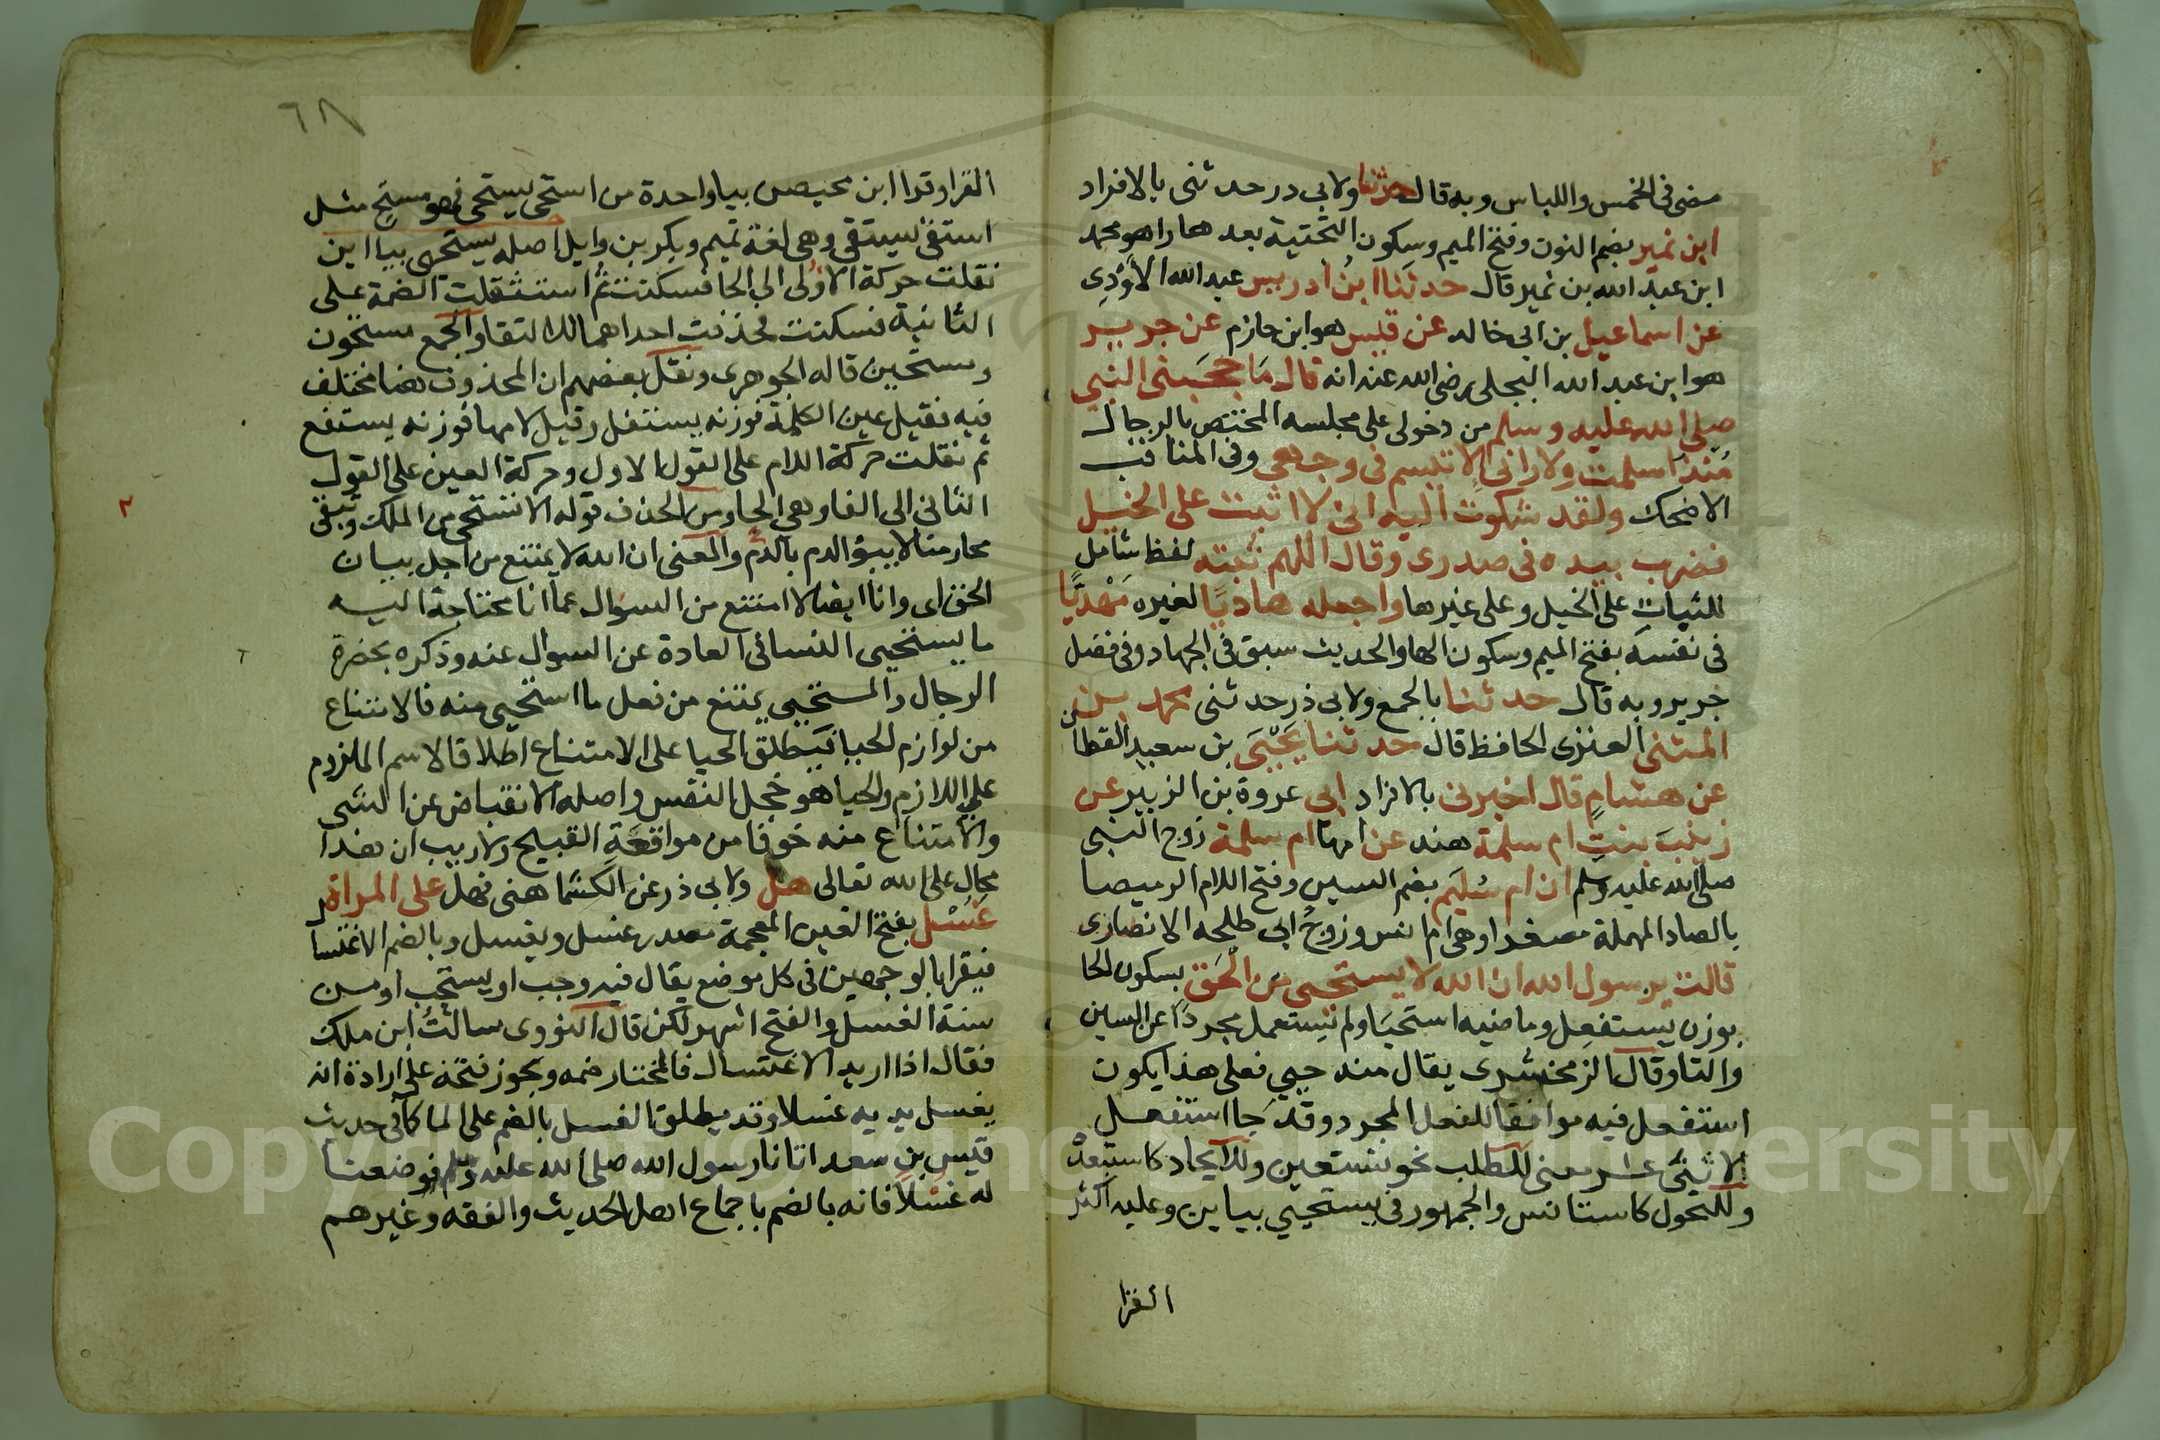 مضى فى الخمس واللباس وبه قال حدثنا ولابى ذر حدثنى بالافراد
ابن نمير بضم النون وفتح الميم وسكون التحتية بعدها را هو محمد
ابن عبد الله بن نمير قال حدثنا ابن ادريس عبد الله الاودى
عن اسماعيل بن ابى خالد عن قيس هو ابن حازم عن جرير
هو ابن عبد الله البجلى رضى الله عنه انه قال ما حجبنى النبى
صلى الله عليه وسلم من دخولى على مجلسه المختص بالرجال
منذ اسلمت ولا رانى الا تبسم فى وجهى وفى المناقب
الا ضحك ولقد شكوت اليه انى لا اثبت على الخيل
فضرب بيده فى صدرى وقال اللهم ثبته لفظ شامل
للثبات على الخيل وعلى غيرها واجعله هاديا لغيره مَهْديًّا
فى نفسه بفتح الميم وسكون الها والحديث سبق فى الجهاد وفى فضل
جرير وبه قال حدثنا بالجمع ولابى ذر حدثنى محمد بن
المثنى العنزى الحافظ قال حدثنا يَحْيَى بن سعيد القطان
عن هشام قال اخبرنى بالافراد ابى عروة بن الزبير عن
زينب بنت ام سلمة هند عن امها ام سلمة زوج النبى
صلى الله عليه وسلم ان ام سُلَيم بضم السين وفتح اللام الرميصا
بالصاد المهملة مصغرا وهى ام انس وزوج ابى طلحه الانصارى
قالت يرسول الله ان الله لا يستحيى من الحق بسكون الحا
بوزن يستفعل وماضيه استحيا ولم يستعمل مجردا عن السين
والتا وقال الزمخشرى يقال منه حيى فعلى هذا يكون
استفعل فيه موافقا للفعل المجرد وقد جا استفعل
لاثنى عشر معنى للطلب نحو نستعين وللايجاد كاستبعد
وللتحول كاستانس والجمهور فى يستحيي بيايين وعليه اكثر
القرا
٦٨
القرا وقرا ابن محيصن بيا واحدة من استحى يستحى فهو مستح مثل
استقى يستقى وهى لغة تميم وبكر بن وايل اصله يستحيى بياين
نقلت حركة الاولى الى الحا فسكنت ثم استثقلت الضمة على
الثانية فسكنت فحذفت احداهما للالتقا والجمع مستحون
ومستحين قاله الجوهرى ونقل بعضهم ان المحذوف هنا مختلف
فيه فقيل عين الكلمة فوزنه يستفل وقيل لامها فوزنه يستفع
ثم نقلت حركة اللام على القول الاول وحركة العين على القول
الثانى الى الفا وهى الحا ومن الحذف قوله الا تستحى من الملك وتبقى
محارمنا لا يبؤ الدم بالدم والمعنى ان الله لا يمتنع من اجل بيان
الحق اى وانا ايضا لا امتنع من السوال عما انا محتاجة اليه
ما يستحيى النسا فى العادة عن السوال عنه وذكره بحضرة
الرجال والمستحيى يمتنع من فعل ما استحيى منه فالامتناع
من لوازم الحيا فيطلق الحيا على الامتناع اطلاقا لاسم الملزوم
على اللازم والحيا هو خجل النفس واصله الانقباض عن الشى
والامتناع منه خوفا من مواقعة القبيح ولا ريب ان هذا
محال على الله تعالى هل ولابى ذر عن الكشماهنى فهل على المراة
غسل بفتح الغين المعجمة مصدر غسل ويغسل وبالضم الاغتسا
فيقرا بالوجهين فى كل موضع يقال فيه وجب او يستحب او من
سنة الغسل والفتح اشهر لكن قال النووى سالت ابن ملك
فقال اذا اريد الاغتسال فالمختار ضمه ويجوز فتحه على ارادة انه
يغسل يديه غسلا وقد يطلق الغسل بالضم على الما كما فى حديث
قيس بن سعد اتانا رسول الله صلى الله عليه وسلم فوضعنا
له غسلا فانه بالضم باجماع اهل الحديث والفقه وغيرهم